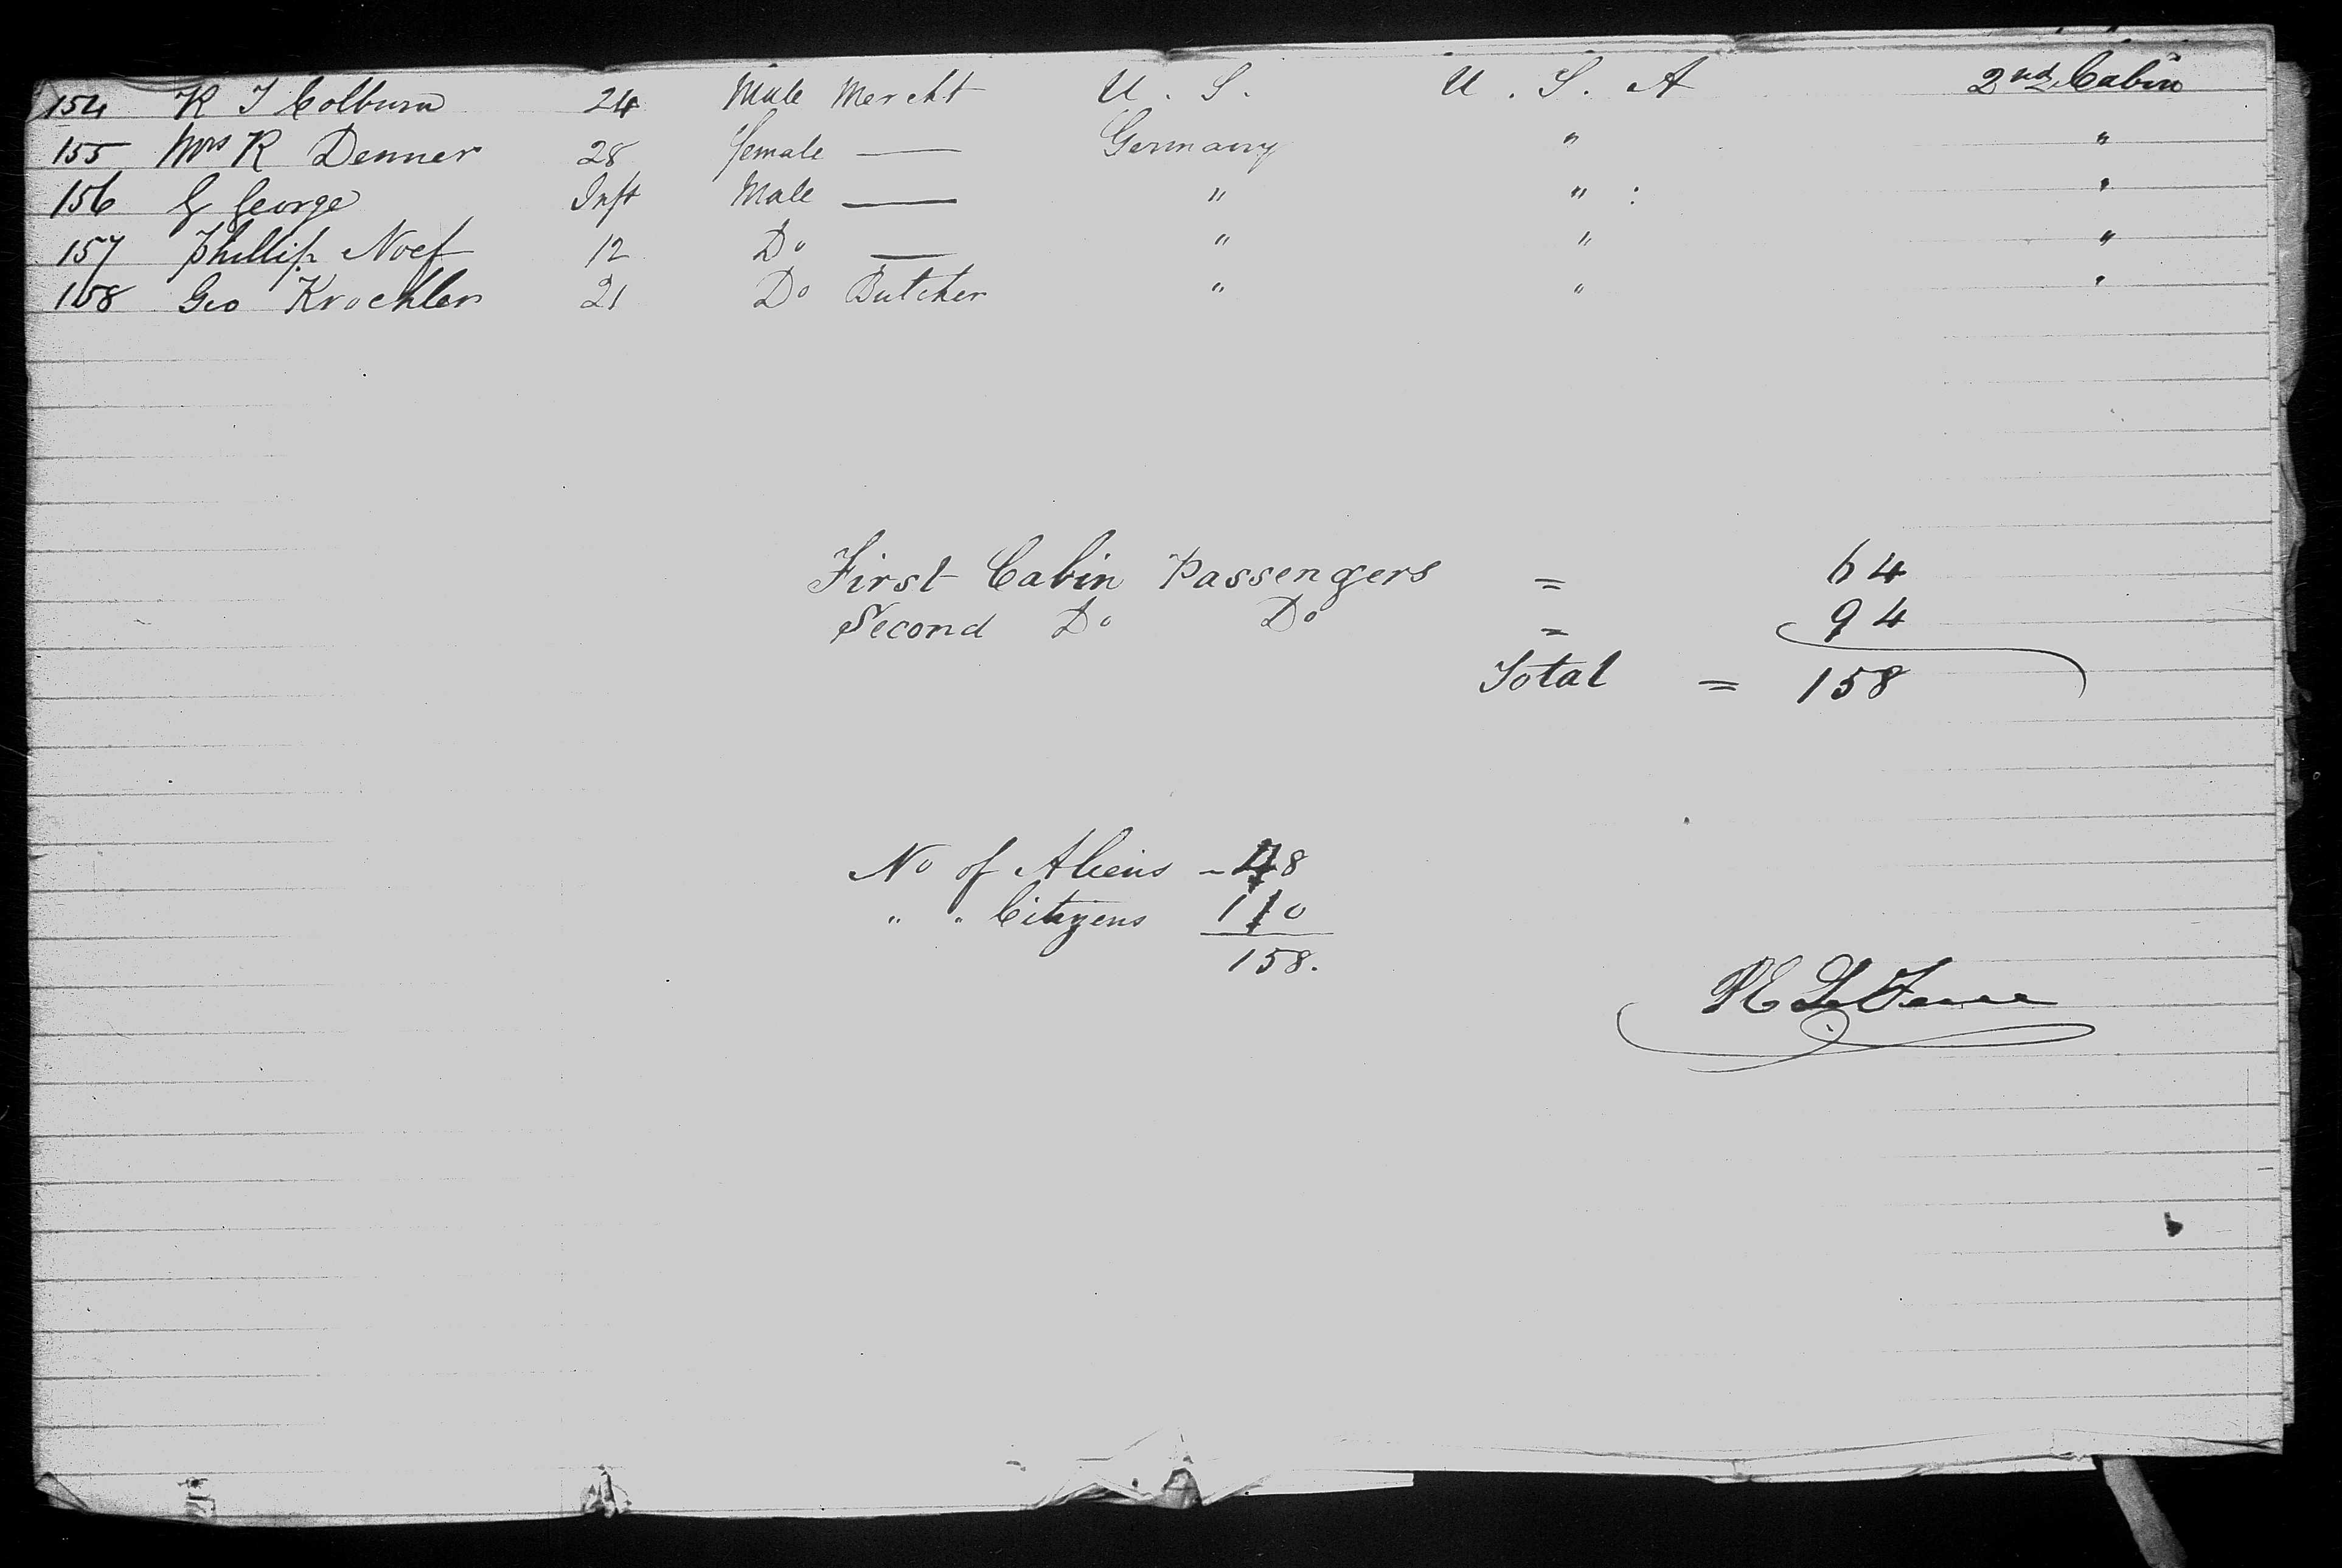 154 R J Colburn 24 Male Mercht U. S. U. S. A 2nd Cabin
155 Mrs R Denner 28 female — Germany " "
156 G George Inft Male — " " : "
157 Phillip Noef 12 Do — " " "
158 Geo Krochler 21 Do Butcher " " "
First Cabin Passengers = 64
Second Do Do = 94
Total = 158
No of Aliens - 48
" " Citizens 110
158.